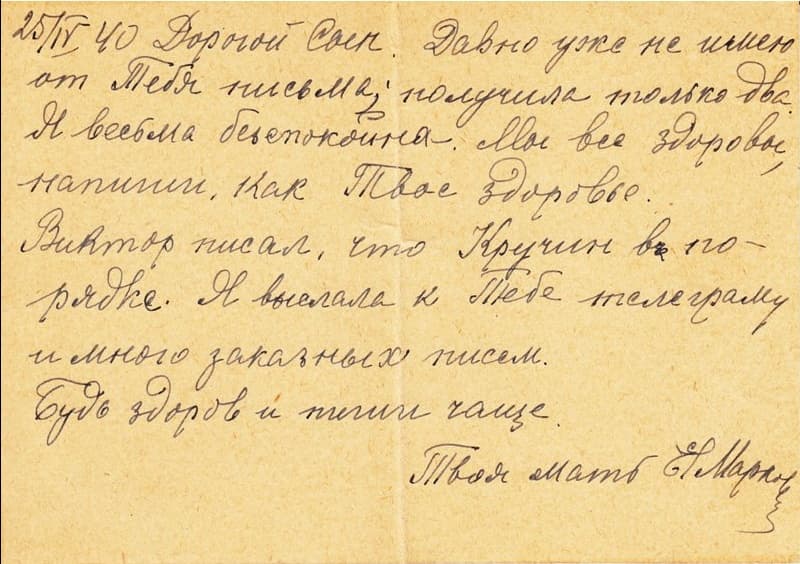 25/IV 40 Дорогой Сын. Давно уже не имею
от Тебя письма; получила только два.
Я весьма безпокойна. Мы все здоровы,
напиши, как Твое здоровье.
Виктор писал, что Кручин в по-
рядке. Я выслала к Тебе телеграму
и много заказных писем.
Будь здоров и пиши чаще.
Твоя мать